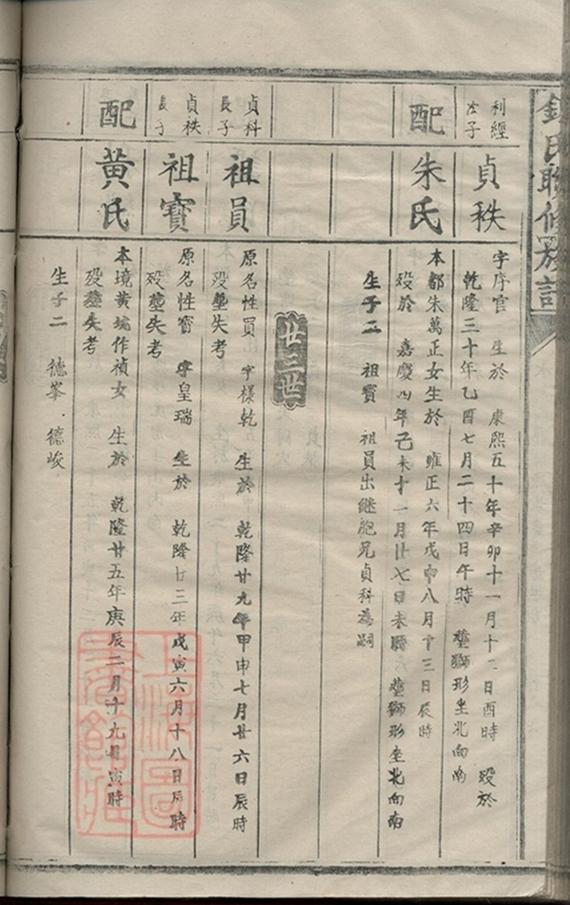 氏聯修族譜
利經
子
貞秩
字序官 生於 康熙五十年辛卯十一月十二日酉時 歿於
乾隆三十年乙酉七月二十四日午時 塟獅形坐北向南
配
朱氏
本都朱萬正女生於 雍正六年戊申八月十三日辰時
歿於 嘉慶四年己未十一月廿七日未時 塟獅形坐北向南
生子二 祖寶 祖員出継胞兄貞科為嗣
廿三世
貞科
長子
祖員
原名性員 字様乾 生於 乾隆廿九年甲申七月廿六日辰時
歿塟失考
貞秩
長子
祖寶
原名性寶 字皇瑞 生於 乾隆廿三年戊寅六月十八日辰時
歿塟失考
配
黄氏
本境黄瑞作禎女 生於 乾隆廿五年庚辰二月十九日寅時
歿塟失考
生子二 德峯 德峻